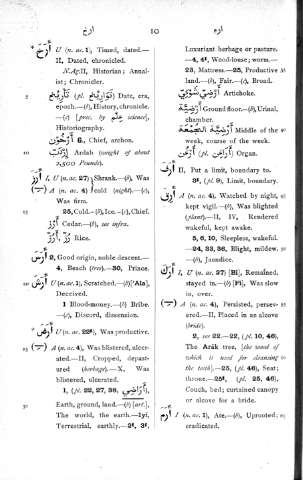 ارخ 10 ارم
أَرَخَ * U (n. ac. 1), Timed, dated.—
II, Dated, chronicled.
N.AgII, Historian; Annal-
ist; Chronicler.
تَأْرِيخ (pl. تَوَارِيخ) Date, era,
epoch.—(b), History, chronicle.
—(c) [prec. by عِلْم] science,
Historiography.
أَرْخُون 6., Chief, archon.
Ardab (weight of about
2,500 Pounds).
أَرَزَ I, U (n. ac. 27) Shrank.—(b), Was
A (n. ac. 4) cold (night).—(c),
Was firm.
25, Cold.—(b), Ice.—(c), Chief.
أَرْز Cedar.—(b), see infra.
Rice.
2, Good origin, noble descent.—
4, Beach (tree).—30, Prince.
أَرَشَ U (n. ac. 1), Scratched.—(b) ['Ala],
Deceived.
1 Blood-money.—(b) Bribe.
—(c), Discord, dissension.
أَرُضَ * U (n. ac. 22t), Was productive.
A (n. ac. 4), Was blistered, ulcer-
ated.—II, Cropped, depast-
ured (herbage).—X, Was
blistered, ulcerated.
1, (pl. 22, 27, 38, أَرَاضِي),
Earth, ground, land.—(b) [art.],
The world, the earth.—1yi,
Terrestrial, earthly.—2t, 3t,
Luxuriant herbage or pasture.
—4, 4t, Wood-louse; worm.—
23, Mattress.—25, Productive
land.—(b), Fair.—(c), Broad.
أَرْضِي شَوْكِي Artichoke.
أَرْضِيَّة Ground floor.—(b), Urinal,
chamber.
أَرْضِيَّة الْجُمْعَة Middle of the
week, course of the week.
(pl. Organ.
أَرَّفَ II, Put a limit, boundary to.
3t, (pl. 9), Limit, boundary.
أَرِقَ A (n. ac. 4), Watched by night,
kept vigil.—(b), Was blighted
(plant).—II, IV, Rendered
wakeful, kept awake.
5, 6, 10, Sleepless, wakeful.
—24, 33, 36, Blight, mildew.
—(b), Jaundice.
أَرَكَ I, U (n. ac. 27) [Bi], Remained,
stayed in.—(b) [Fi], Was slow
in, over.
A (n. ac. 4), Persisted, persev-
ered.—II, Placed in an alcove
(bride).
2, see 22.—22, (pl. 10, 46),
The Arâk tree, [the wood of
which is used for cleansing
the teeth].—25, (pl. 46), Seat;
throne.—25t, (pl. 25, 46),
Couch, bed; curtained canopy
or alcove for a bride.
أَرَمَ I (n. ac. 1), Ate,—(b), Uprooted;
eradicated.